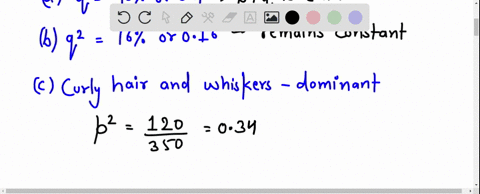 (b) q² = 16% or 0.16 – remains constant
(c) Curly hair and whiskers – dominant
p² = 120/350 = 0.34